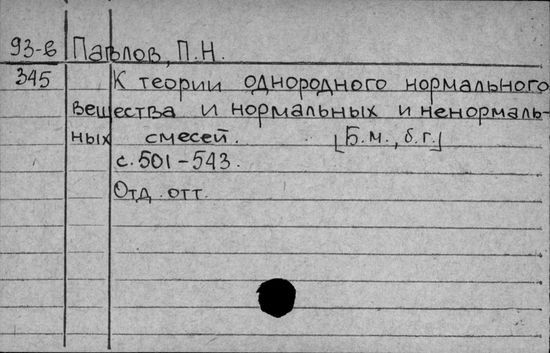 93-в Павлов, П.Н.
345 К теории однородного нормального
вещества и нормальных и ненормаль-
ных смесей. [Б.м., б.г.]
с. 501-543.
Отд. отт.